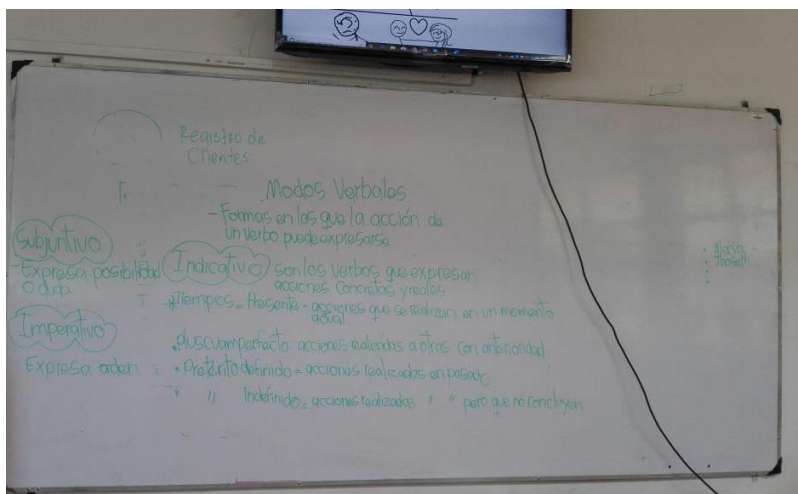 Registro de
Clientes
Modos Verbales
- Formas en las que la acción de
un verbo puede expresarse
Subjuntivo
Expresa posibilidad
o duda
Indicativo
son los verbos que expresan
acciones concretas y reales
*Tiempos = Presente = acciones que se realizan en un momento
actual
Imperativo
Expresa
• Pluscuamperfecto acciones realizadas a otras con anterioridad
• Pretérito definido = acciones realizadas en pasado
" Indefinido = acciones realizadas " " pero que no concluyen